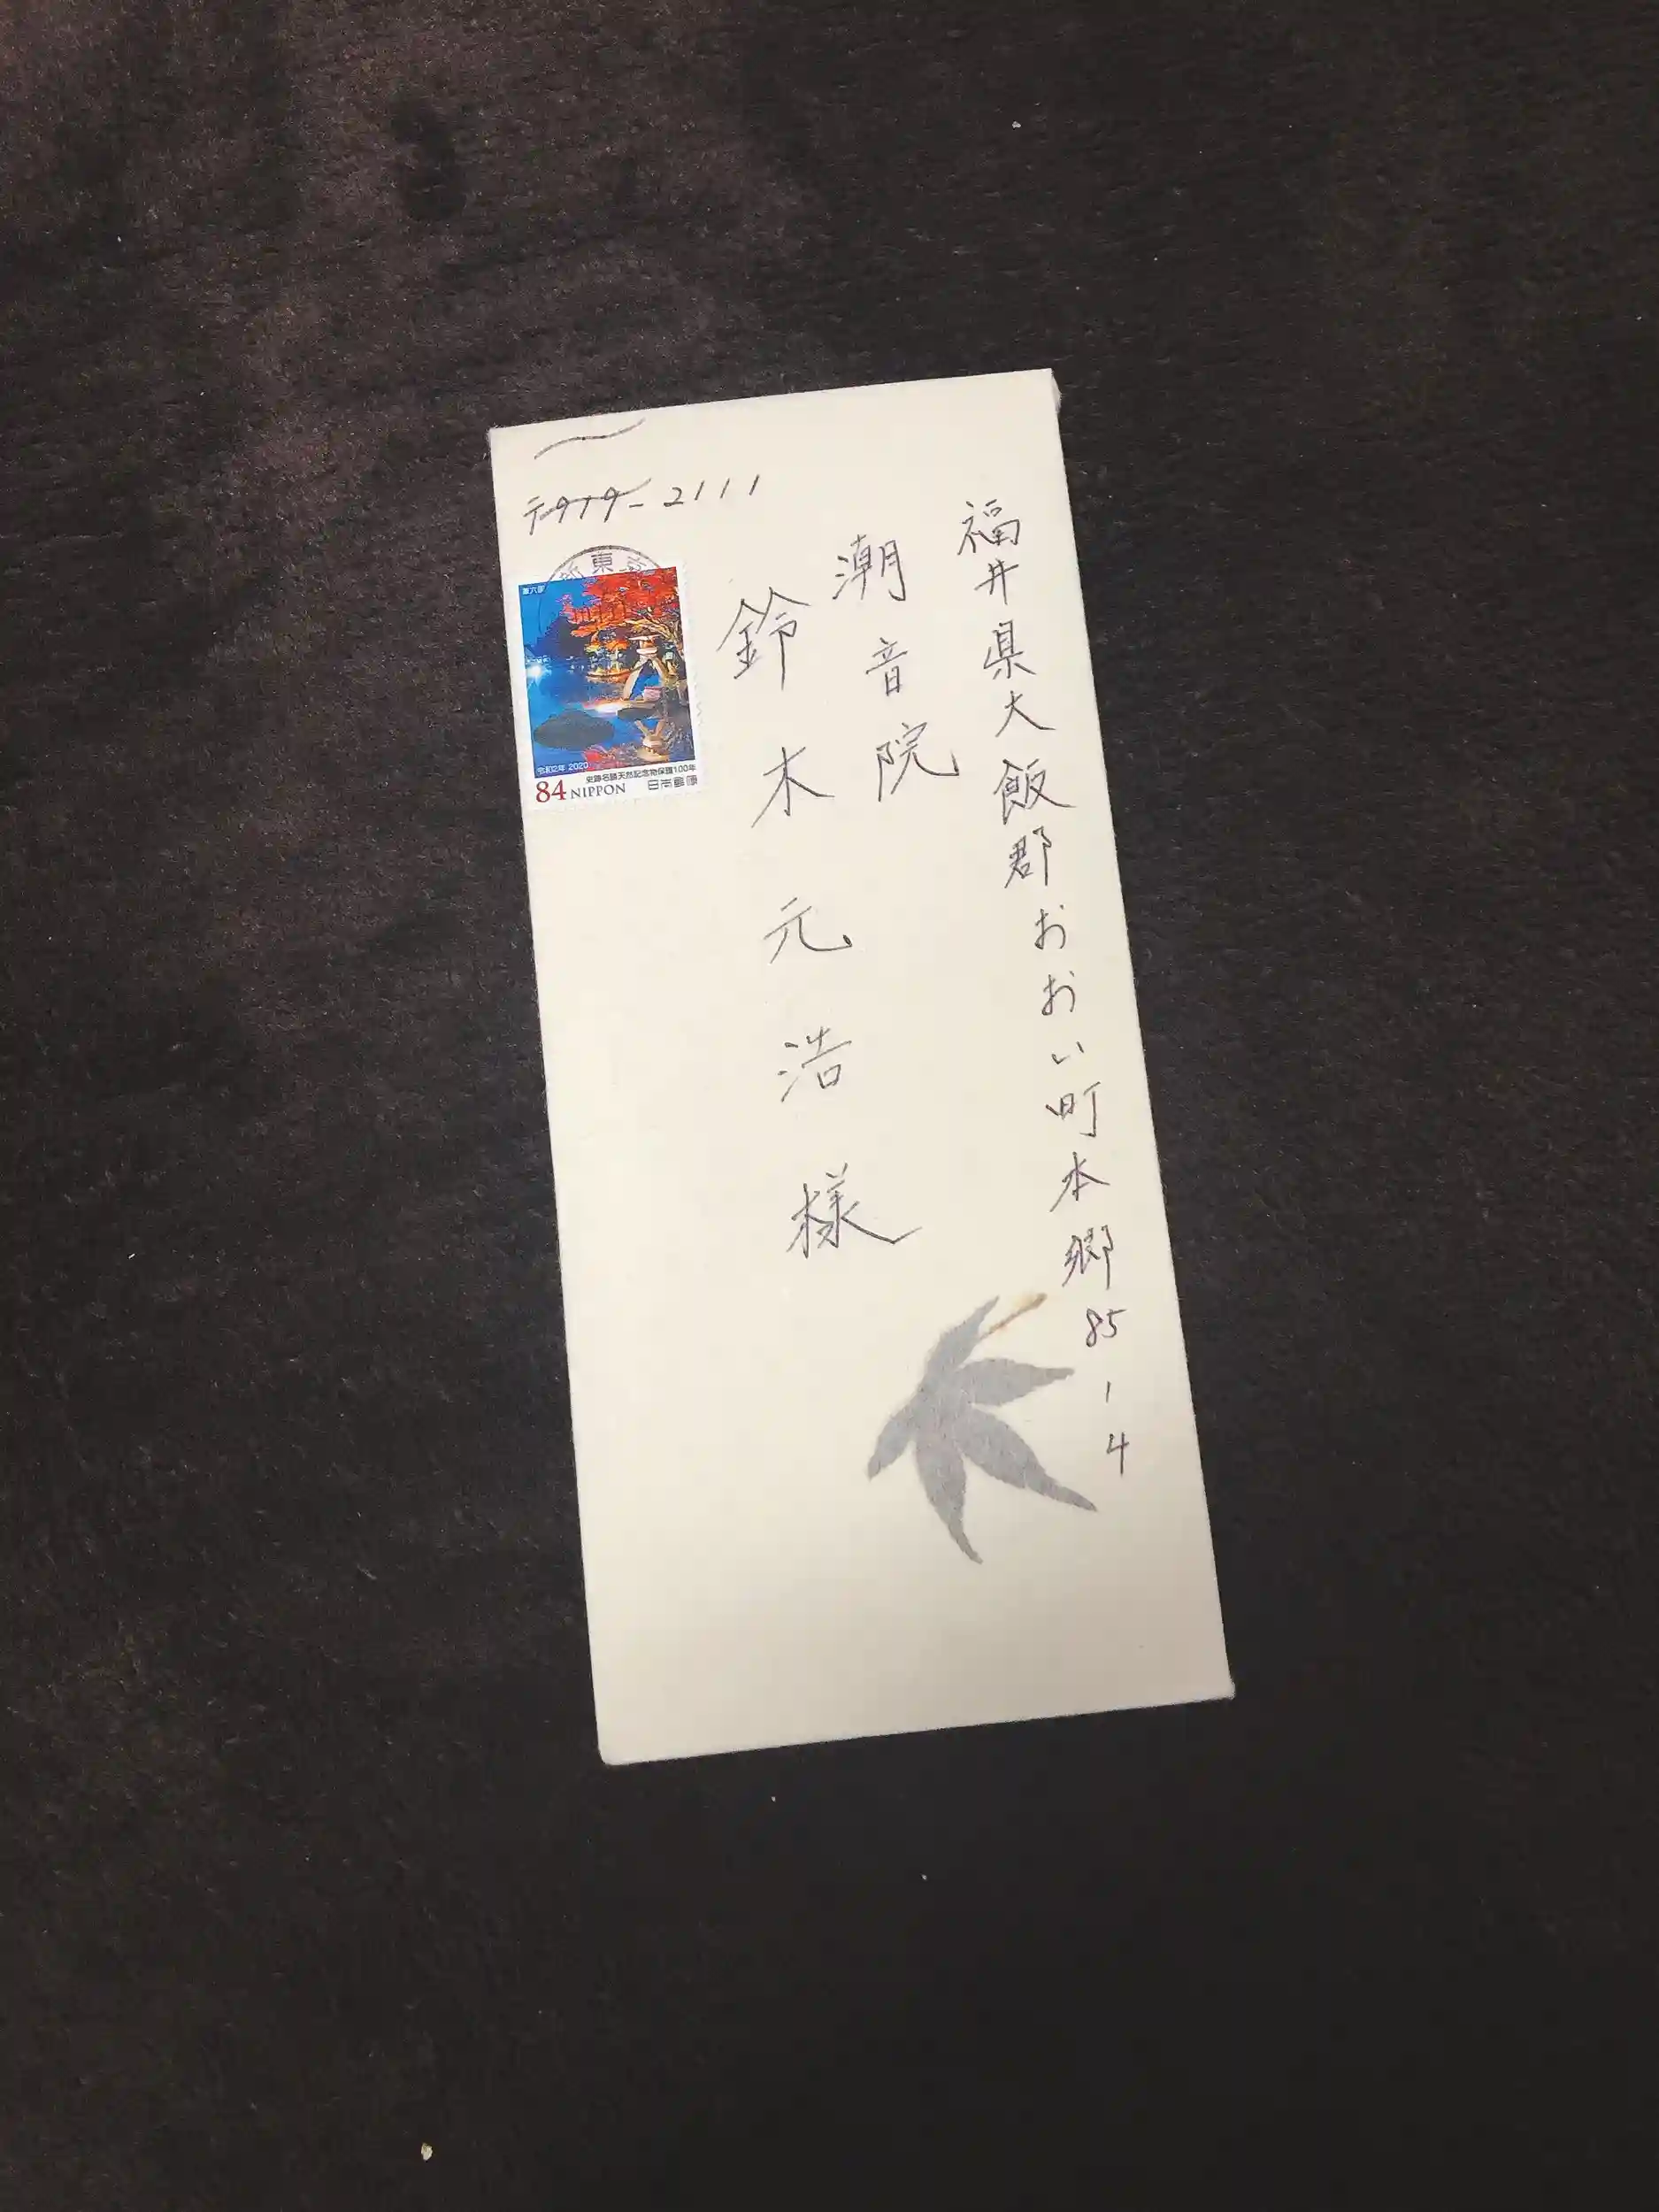 〒919-2111
福井県大飯郡おおい町本郷85-4
潮音院
鈴木元浩様
東京
兼六園
令和2年 2020
史跡名勝天然記念物保護100年
84 NIPPON 日本郵便